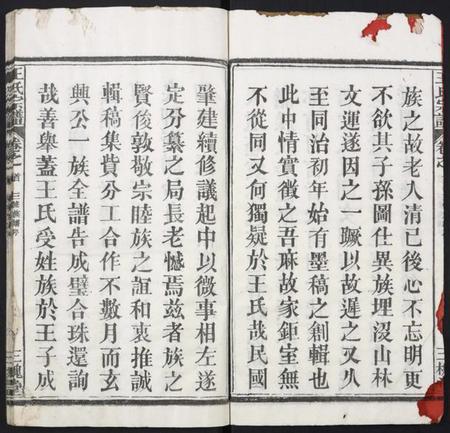 族之故老人清己後心不忘明更
不欲其子孫圖仕異族埋沒山林
文運遂因之一蹶以故遲之又久
至同治初年始有墨稿之創輯也
此中情實徵之吾麻故家鉅室無
不從同又何獨疑於王氏哉民國
肇建續修議起中以微事相左遂
定分纂之局長老憾焉茲者族之
賢俊敦敬宗睦族之誼和衷推誠
輯稿集貲分工合作不數月而玄
興公一族全譜告成璧合珠還詢
哉善舉蓋王氏受姓族於王子成
王氏宗譜
卷之
三槐
王氏宗譜
卷之一
首
三槐堂